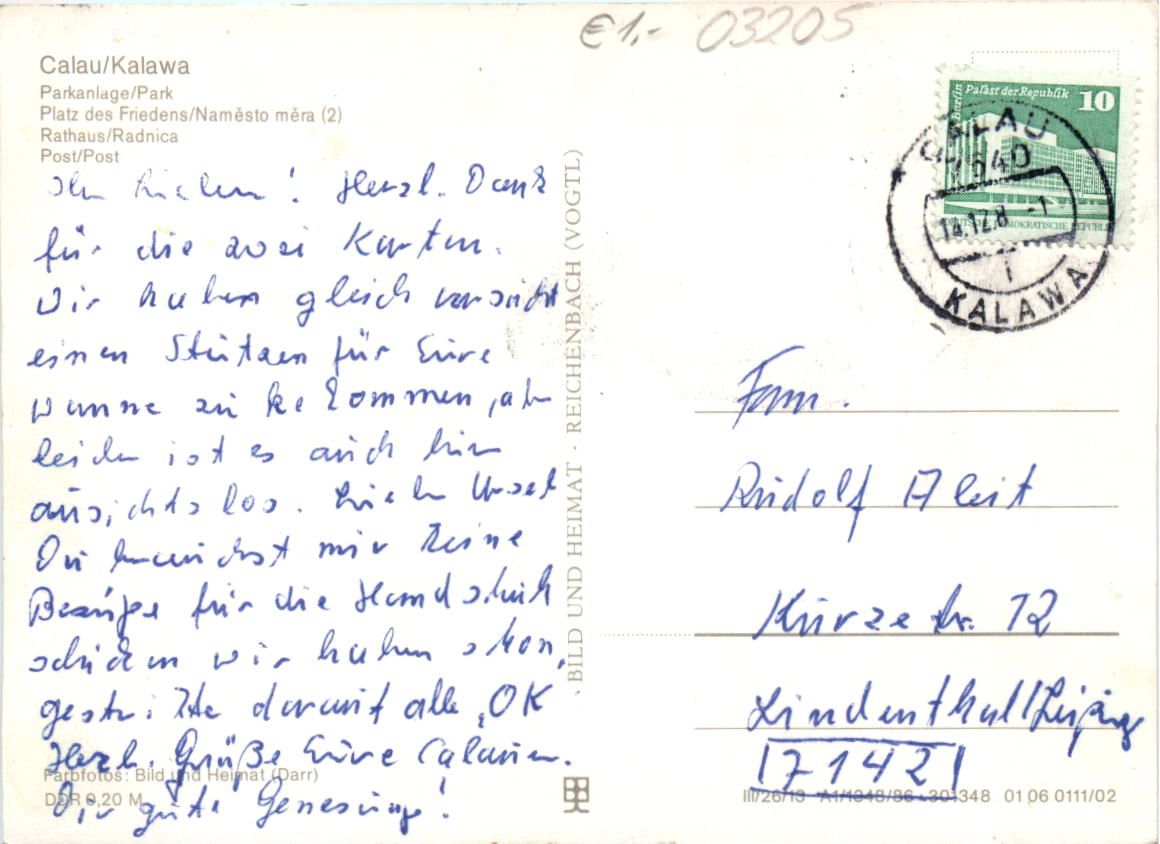 €1,- 03205
Calau/Kalawa
Parkanlage/Park
Platz des Friedens/Naměsto měra (2)
Rathaus/Radnica
Post/Post
Berlin Palast der Republik 10
DEUTSCHE DEMOKRATISCHE REPUBLIK
CALAU
14.12.8 -1
i
KALAWA
Ihr Lieben! Herzl. Dank
für die zwei Karten.
Wir haben gleich versucht
einen Stutzen für Eure
Wanne zu bekommen, aber
leider ist es auch hier
aussichtslos. Liebe Ursel
Du brauchst mir keine
Bezüge für die Handschuh
schicken wir haben schon,
gestrickte darauf alle "OK
Herzl. Grüße Eure Calauer.
Dir gute Genesung!
BILD UND HEIMAT · REICHENBACH (VOGTL)
Fam.
Rudolf Aleit
Kurze Str. 12
Lindenthal/Leipzig
7142
Farbfotos: Bild und Heimat (Darr)
DDR 0,20 M
III/26/13 A1/1348/86 301348 01 06 0111/02